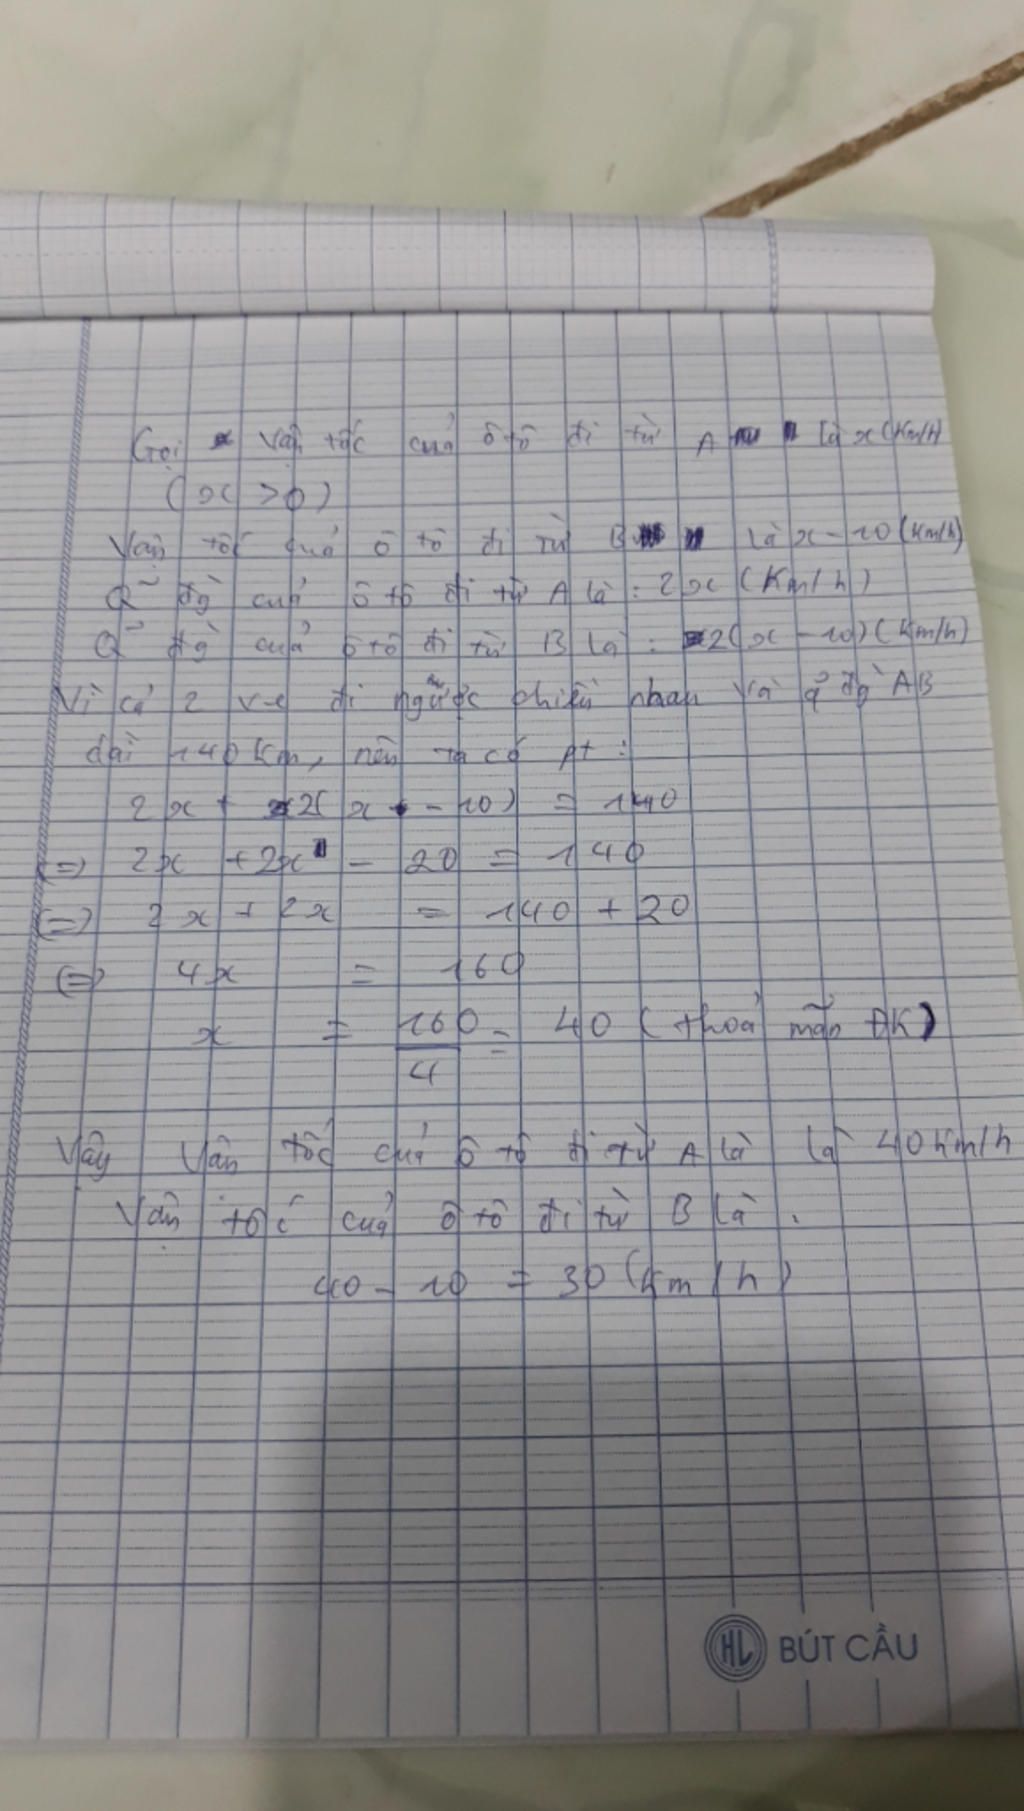 Gọi vận tốc của ô tô đi từ A là x (Km/h)
(x > 0)
Vận tốc của ô tô đi từ B là x - 10 (km/h)
Q~ đg` của ô tô đi từ A là : 2x (Km/h)
Q~ đg` của ô tô đi từ B là : 2(x - 10) (Km/h)
Vì cả 2 đi ngược chiều nhau và q~ đg` AB
dài 140 Km, nên ta có pt :
2x + 2(x - 10) = 140
(=) 2x + 2x - 20 = 140
(=) 2x + 2x = 140 + 20
(=) 4x = 160
x = 160/4 = 40 (thoả mãn ĐK)
Vậy Vận tốc của ô tô đi từ A là là 40 Km/h
Vận tốc của ô tô đi từ B là .
40 - 10 = 30 (Km/h)
HL BÚT CẦU